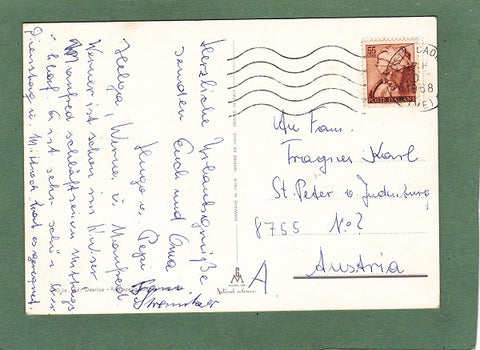 Herzliche Urlaubsgrüße
senden Euch und Oma
Hugo u. Pepi
Helga, Werner u Manfred
Werner ist schon im Wasser
Manfred schläft seinen Mittags
schlaf. Es ist sehr schön hier
Dienstag u. Mittwoch hat es geregnet.
55
POSTE ITALIANE
1968
(VE)
An Fam.
Fragner Karl
St. Peter o. Judenburg
8755 No 2
Austria
A